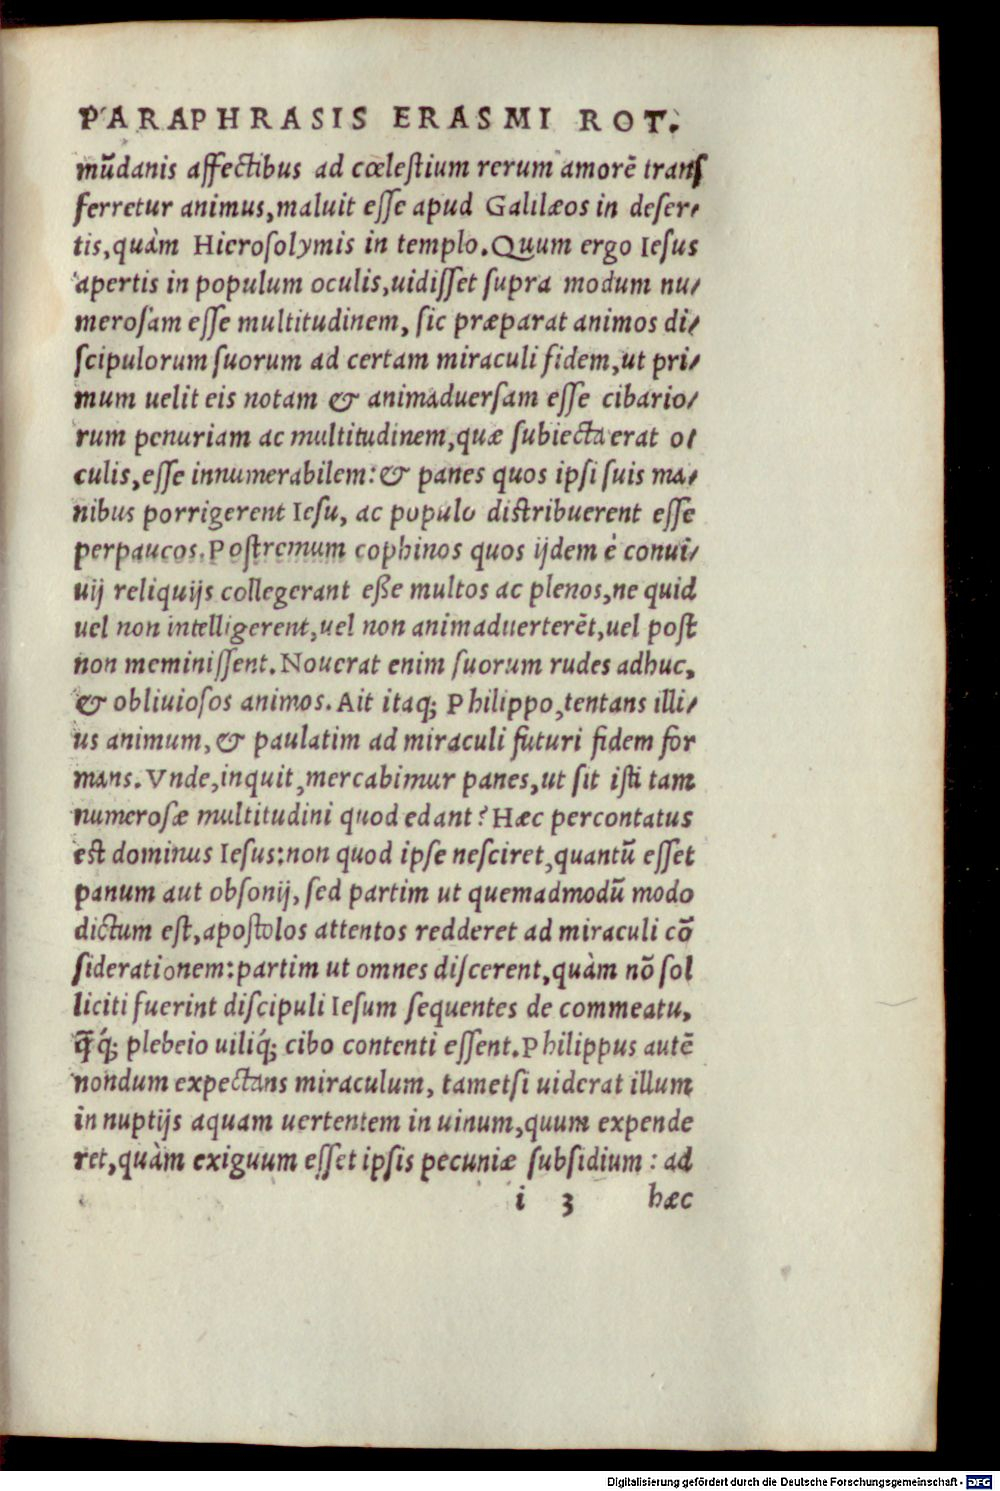 PARAPHRASIS ERASMI ROT.
mũdanis affectibus ad cœlestium rerum amorẽ trans
ferretur animus, maluit esse apud Galilæos in deser-
tis, quàm Hierosolymis in templo. Quum ergo Iesus
apertis in populum oculis, uidisset supra modum nu-
merosam esse multitudinem, sic præparat animos di-
scipulorum suorum ad certam miraculi fidem, ut pri-
mum uelit eis notam & animaduersam esse cibario-
rum penuriam ac multitudinem, quæ subiecta erat o-
culis, esse innumerabilem: & panes quos ipsi suis ma-
nibus porrigerent Iesu, ac populo distribuerent esse
perpaucos. Postremum cophinos quos ijdem è conui-
uij reliquijs collegerant eße multos ac plenos, ne quid
uel non intelligerent, uel non animaduerterẽt, uel post
non meminissent. Nouerat enim suorum rudes adhuc,
& obliuiosos animos. Ait itaq; Philippo, tentans illi-
us animum, & paulatim ad miraculi futuri fidem for
mans. Vnde, inquit, mercabimur panes, ut sit isti tam
numerosæ multitudini quod edant? Hæc percontatus
est dominus Iesus: non quod ipse nesciret, quantũ esset
panum aut obsonij, sed partim ut quemadmodũ modo
dictum est, apostolos attentos redderet ad miraculi cõ
siderationem: partim ut omnes discerent, quàm nõ sol
liciti fuerint discipuli Iesum sequentes de commeatu,
q̃q́; plebeio uiliq́; cibo contenti essent. Philippus autẽ
nondum expectans miraculum, tametsi uiderat illum
in nuptijs aquam uertentem in uinum, quum expende
ret, quàm exiguum esset ipsis pecuniæ subsidium: ad
i 3 hæc
Digitalisierung gefördert durch die Deutsche Forschungsgemeinschaft - DFG